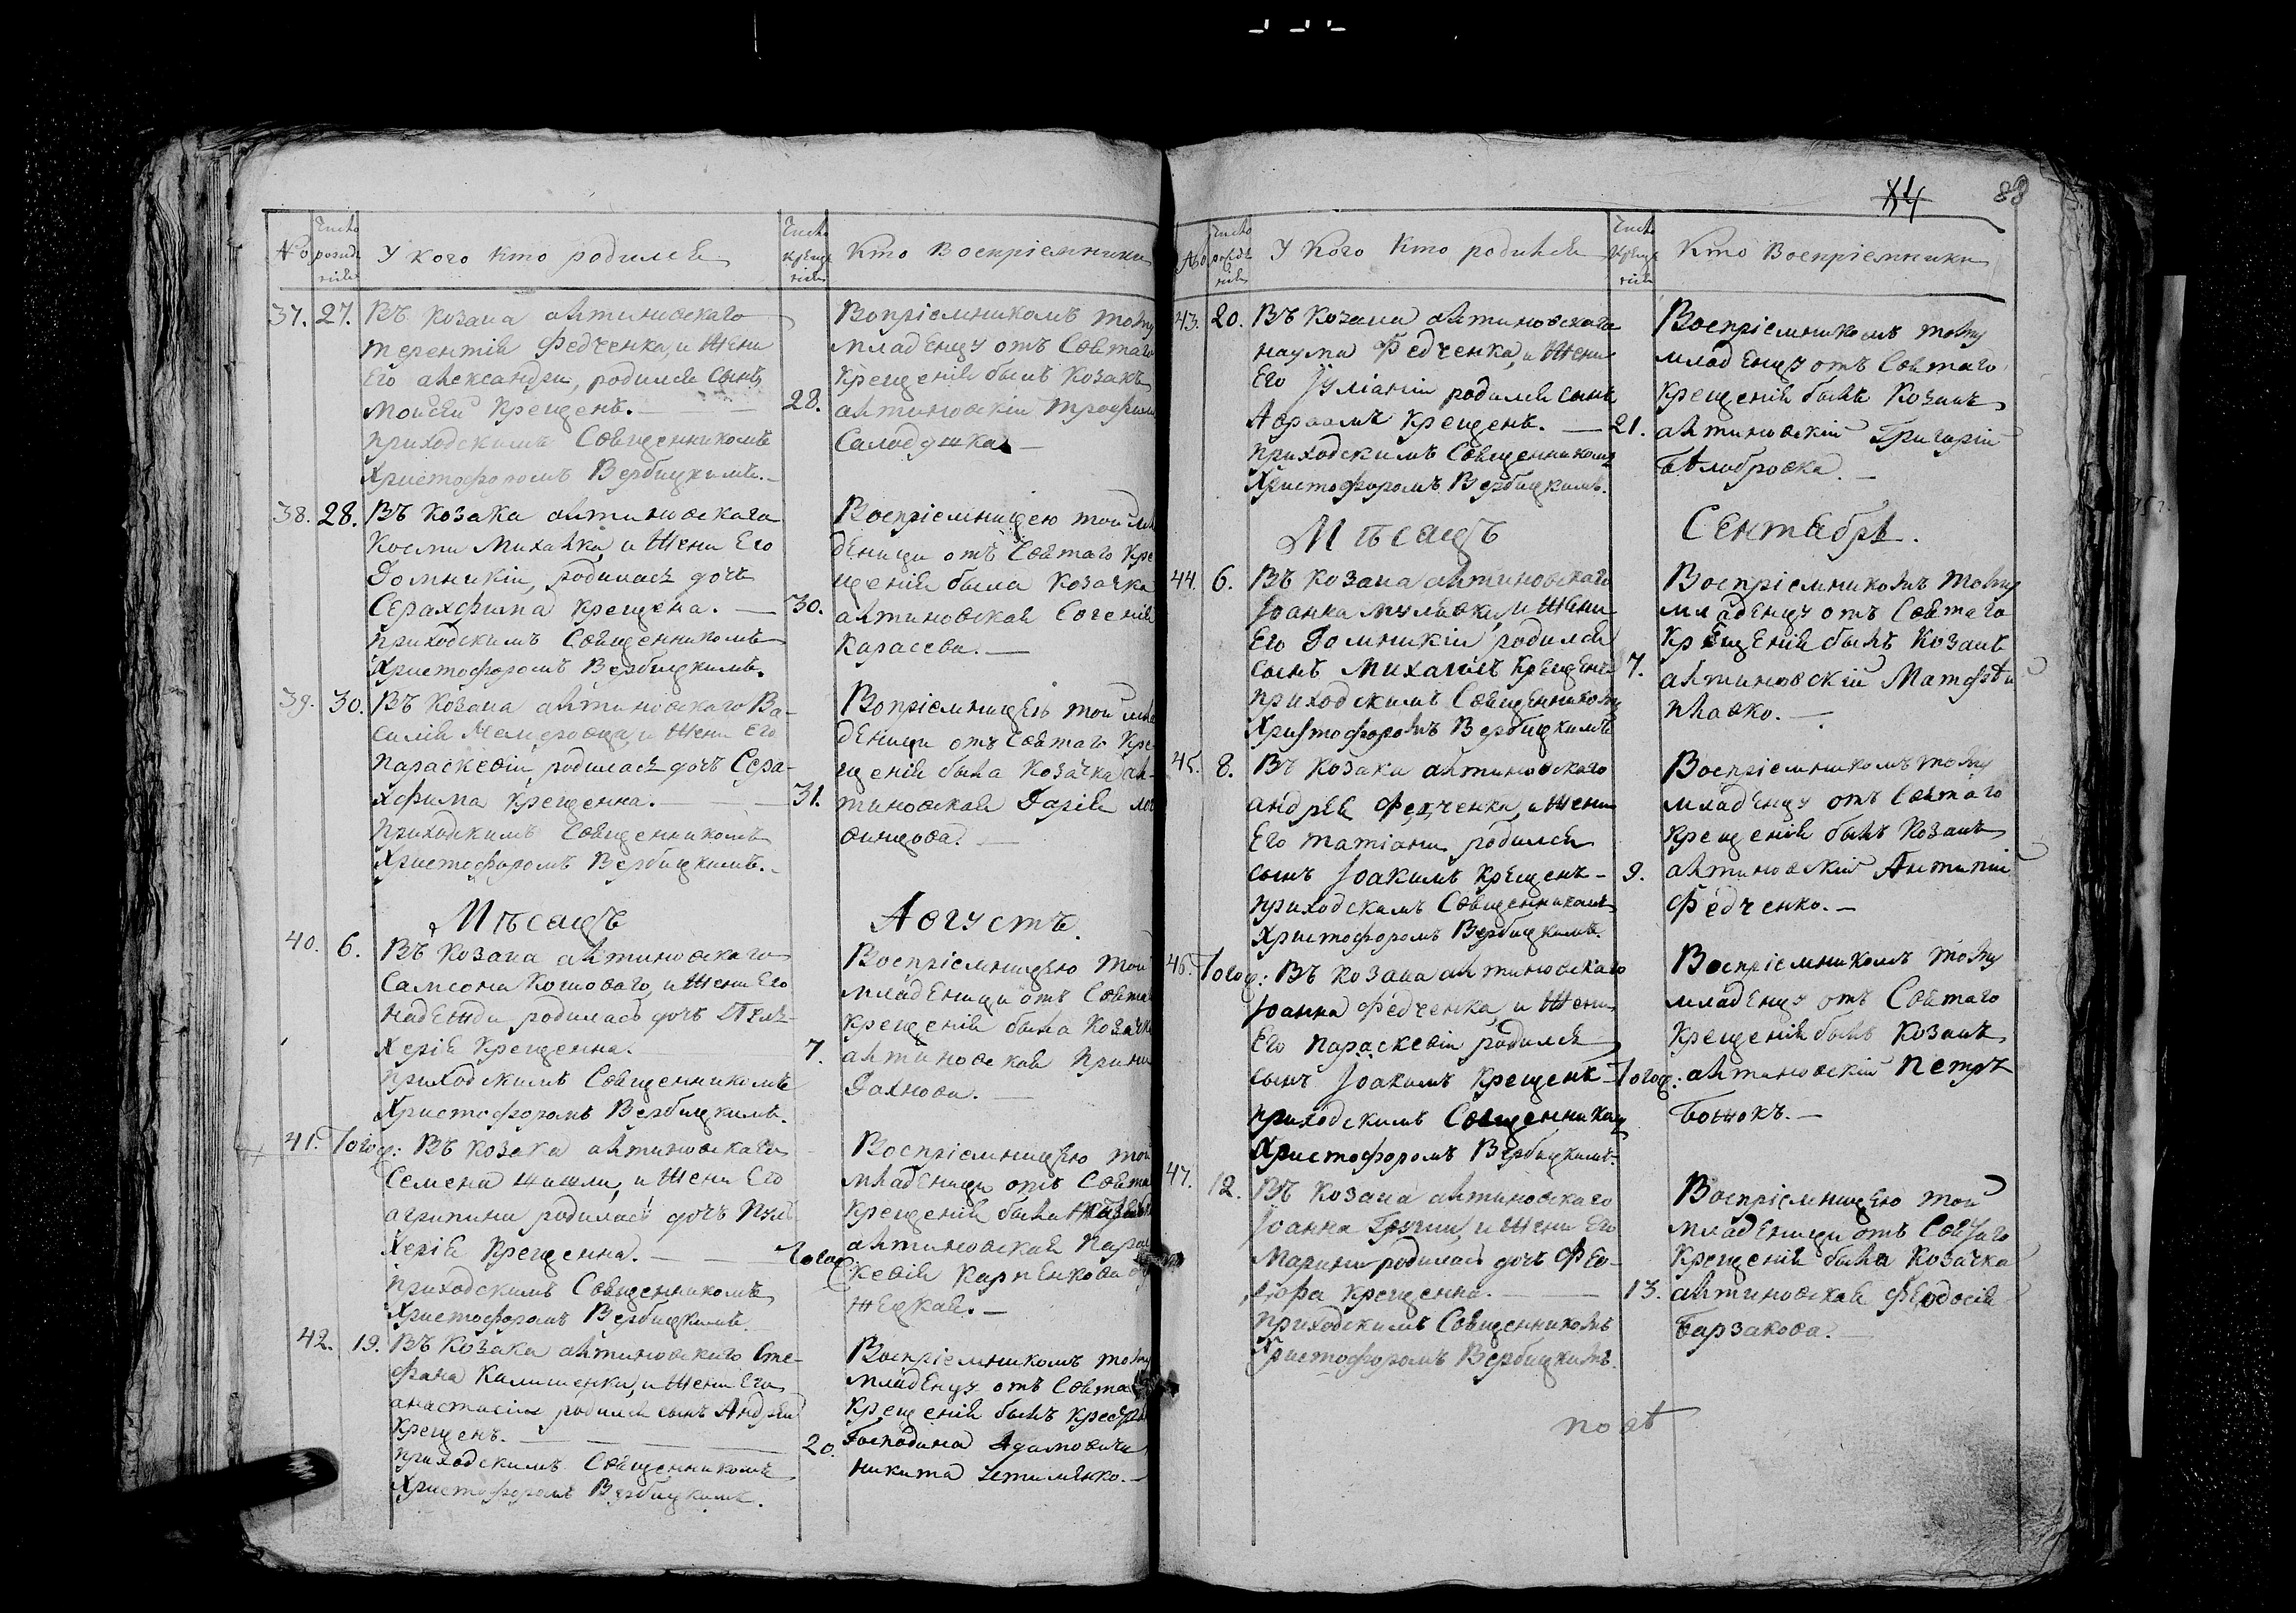 No
Число рожде нія
У кого кто родился
Число креще нія
Кто Воспріемники
37. 27.
Въ козака алтиновскаго
терентія Федченка, и жени
Его александри, родился сынъ
Моисей крещенъ. —
приходскимъ Священникомъ
Христофоромъ Вербицкимъ. —
28.
Вопріемникомъ тому
младенцу отъ Святаго
крещенія былъ козакъ
алтиновскій
38. 28.
Въ козака алтиновскаго
Косми Михалка и жени Его
Домникіи, родилась дочь
Серахфима крещена. —
приходскимъ Священникомъ
Христофоромъ Вербицкимъ.
30.
Воспріемницею той мла
деници отъ Святаго кре
щенія была козачка
алтиновская Евгенія
Карасева. —
39. 30.
Въ козака алтиновскаго Ва-
силія и жени Его
параскевіи, родилась дочь Сера-
хфима крещенна. —
приходскимъ Священникомъ
Христофоромъ Вербицкимъ. —
31.
Вопріемницею той мла
деници отъ Святаго кре
щенія была козачка ал-
тиновская Дарія
винцова. —
Мѣсяцъ Августъ.
40. 6.
Въ козака алтиновскаго
Самсона Кошоваго, и жени Его
надежди родилась дочь Пуль-
херія крещенна.
приходскимъ Священникомъ
Христофоромъ Вербицкимъ.
7.
Воспріемницею той
младеници отъ Свята
крещенія была козачка
алтиновская Ирина
Дахнова. —
41. Тогож:
Въ козака алтиновскаго
Семена и жени Его
агрипини родилась дочь Пуль
херія крещенна. —
приходскимъ Священникомъ
Христофоромъ Вербицкимъ.
Тогож
Воспріемницею той
младеници отъ Свята
крещенія была
алтиновская Парас
кевія Карпенкова
жецкая. —
42. 19.
Въ козака алтиновскаго Сте-
фана Калишенка, и жени Его
анастасіи родился сынъ Андрей
крещенъ. —
приходскимъ Священникомъ
Христофоромъ Вербицкимъ.
20.
Воспріемникомъ тому
младенцу отъ Свята
крещенія былъ
Господина Адамовича
никита —
84 83
No
Число рожде нія
У кого кто родился
Число креще нія
Кто Воспріемники
43. 20.
Въ козака алтиновскаго
наума Федченка, и жени
Его Іуліаніи родился сынъ
Авраамъ крещенъ. —
приходскимъ Священникомъ
Христофоромъ Вербицкимъ.
21.
Воспріемникомъ тому
младенцу отъ Святаго
крещенія былъ козакъ
алтиновскій Григорій
Бѣлобровка. —
Мѣсяцъ Сентабрь.
44. 6.
Въ козака алтиновскаго
Іоанна мулявки, и жени
Его Домникіи родился
сынъ Михаилъ крещенъ
приходскимъ Священникомъ
Христофоромъ Вербицкимъ
7.
Воспріемникомъ тому
младенцу отъ Святаго
крещенія былъ козакъ
алтиновскій Матфѣй
Плавко. —
45. 8.
Въ козака алтиновскаго
андрея Федченка, и жени
Его татіани родился
сынъ Іоакимъ крещенъ —
приходскимъ Священникомъ
Христофоромъ Вербицкимъ.
9.
Воспріемникомъ тому
младенцу отъ Святаго
крещенія былъ козакъ
алтиновскій Антипій
Федченко. —
46. Тогож:
Въ козака алтиновскаго
Іоанна Федченка, и жени
Его параскевіи родился
сынъ Іоакимъ крещенъ
приходскимъ Священником
Христофоромъ Вербицкимъ.
Тогож:
Воспріемникомъ тому
младенцу отъ Святаго
крещенія былъ козакъ
алтиновскій петръ
Божокъ. —
47. 12.
Въ козака алтиновскаго
Іоанна и жени Его
Марини родилась дочь Фео-
крещенна. —
приходскимъ Священникомъ
Христофоромъ Вербицкимъ.
13.
Воспріемницею той
младеници отъ Святаго
крещенія была козачка
алтиновская Феодосія
Барзакова. —